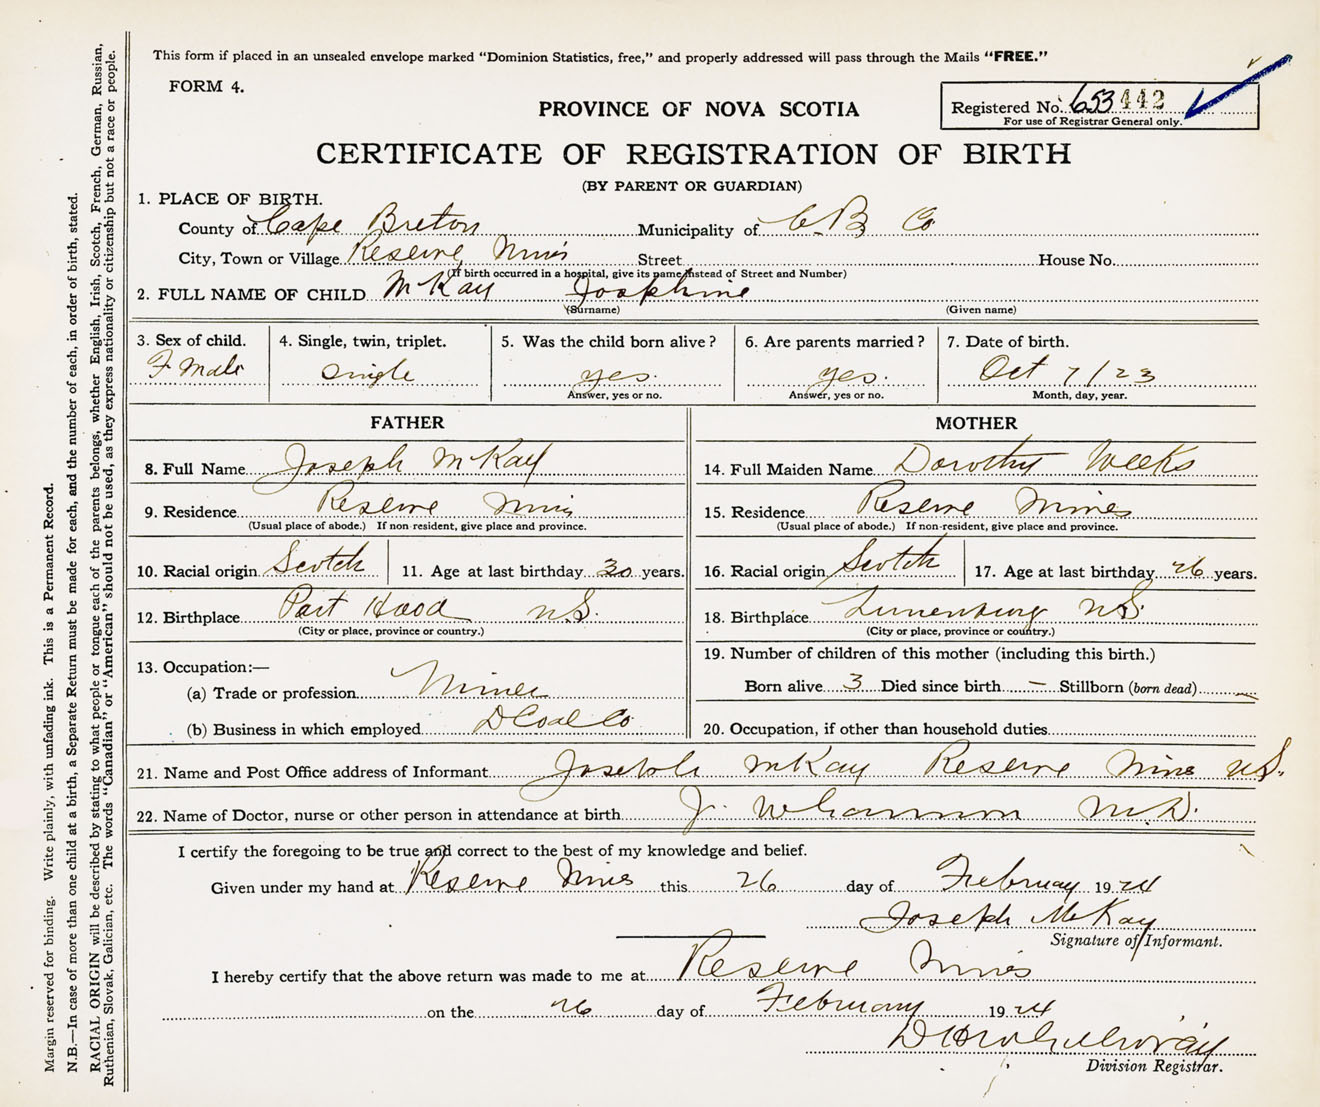 This form if placed in an unsealed envelope marked “Dominion Statistics, free,” and properly addressed will pass through the Mails “FREE.”
FORM 4.
Registered No. 653442
For use of Registrar General only.
PROVINCE OF NOVA SCOTIA
CERTIFICATE OF REGISTRATION OF BIRTH
(BY PARENT OR GUARDIAN)
1. PLACE OF BIRTH.
County of Cape Breton Municipality of C.B Co
City, Town or Village Reserve Mines Street House No.
(If birth occurred in a hospital, give its name instead of Street and Number)
2. FULL NAME OF CHILD McKay Josephine
(Surname) (Given name)
3. Sex of child. 4. Single, twin, triplet. 5. Was the child born alive? 6. Are parents married? 7. Date of birth.
F Male single yes. yes. Oct 7/23
Answer, yes or no. Answer, yes or no. Month, day, year.
FATHER MOTHER
8. Full Name Joseph McKay 14. Full Maiden Name Dorothy Weeks
9. Residence Reserve Mines 15. Residence Reserve Mines
(Usual place of abode.) If non-resident, give place and province. (Usual place of abode.) If non-resident, give place and province.
10. Racial origin Scotch 11. Age at last birthday 30 years. 16. Racial origin Scotch 17. Age at last birthday 26 years.
12. Birthplace Port Hood N.S. 18. Birthplace Lunenburg N.S.
(City or place, province or country.) (City or place, province or country.)
13. Occupation:— 19. Number of children of this mother (including this birth.)
(a) Trade or profession Miner Born alive 3 Died since birth — Stillborn (born dead) —
(b) Business in which employed D Coal Co 20. Occupation, if other than household duties
21. Name and Post Office address of Informant Joseph McKay Reserve Mines N.S.
22. Name of Doctor, nurse or other person in attendance at birth J. M.D.
I certify the foregoing to be true and correct to the best of my knowledge and belief.
Given under my hand at Reserve Mines this 26 day of February 1924
Joseph McKay
Signature of Informant.
I hereby certify that the above return was made to me at Reserve Mines
on the 26 day of February 1924
Division Registrar.
Margin reserved for binding. Write plainly, with unfading ink. This is a Permanent Record.
N.B.—In case of more than one child at a birth, a Separate Return must be made for each, and the number of each, in order of birth, stated.
RACIAL ORIGIN will be described by stating to what people or tongue each of the parents belongs, whether English, Irish, Scotch, French, German, Russian,
Ruthenian, Slovak, Galician, etc. The words “Canadian” or “American” should not be used, as they express nationality or citizenship but not a race or people.